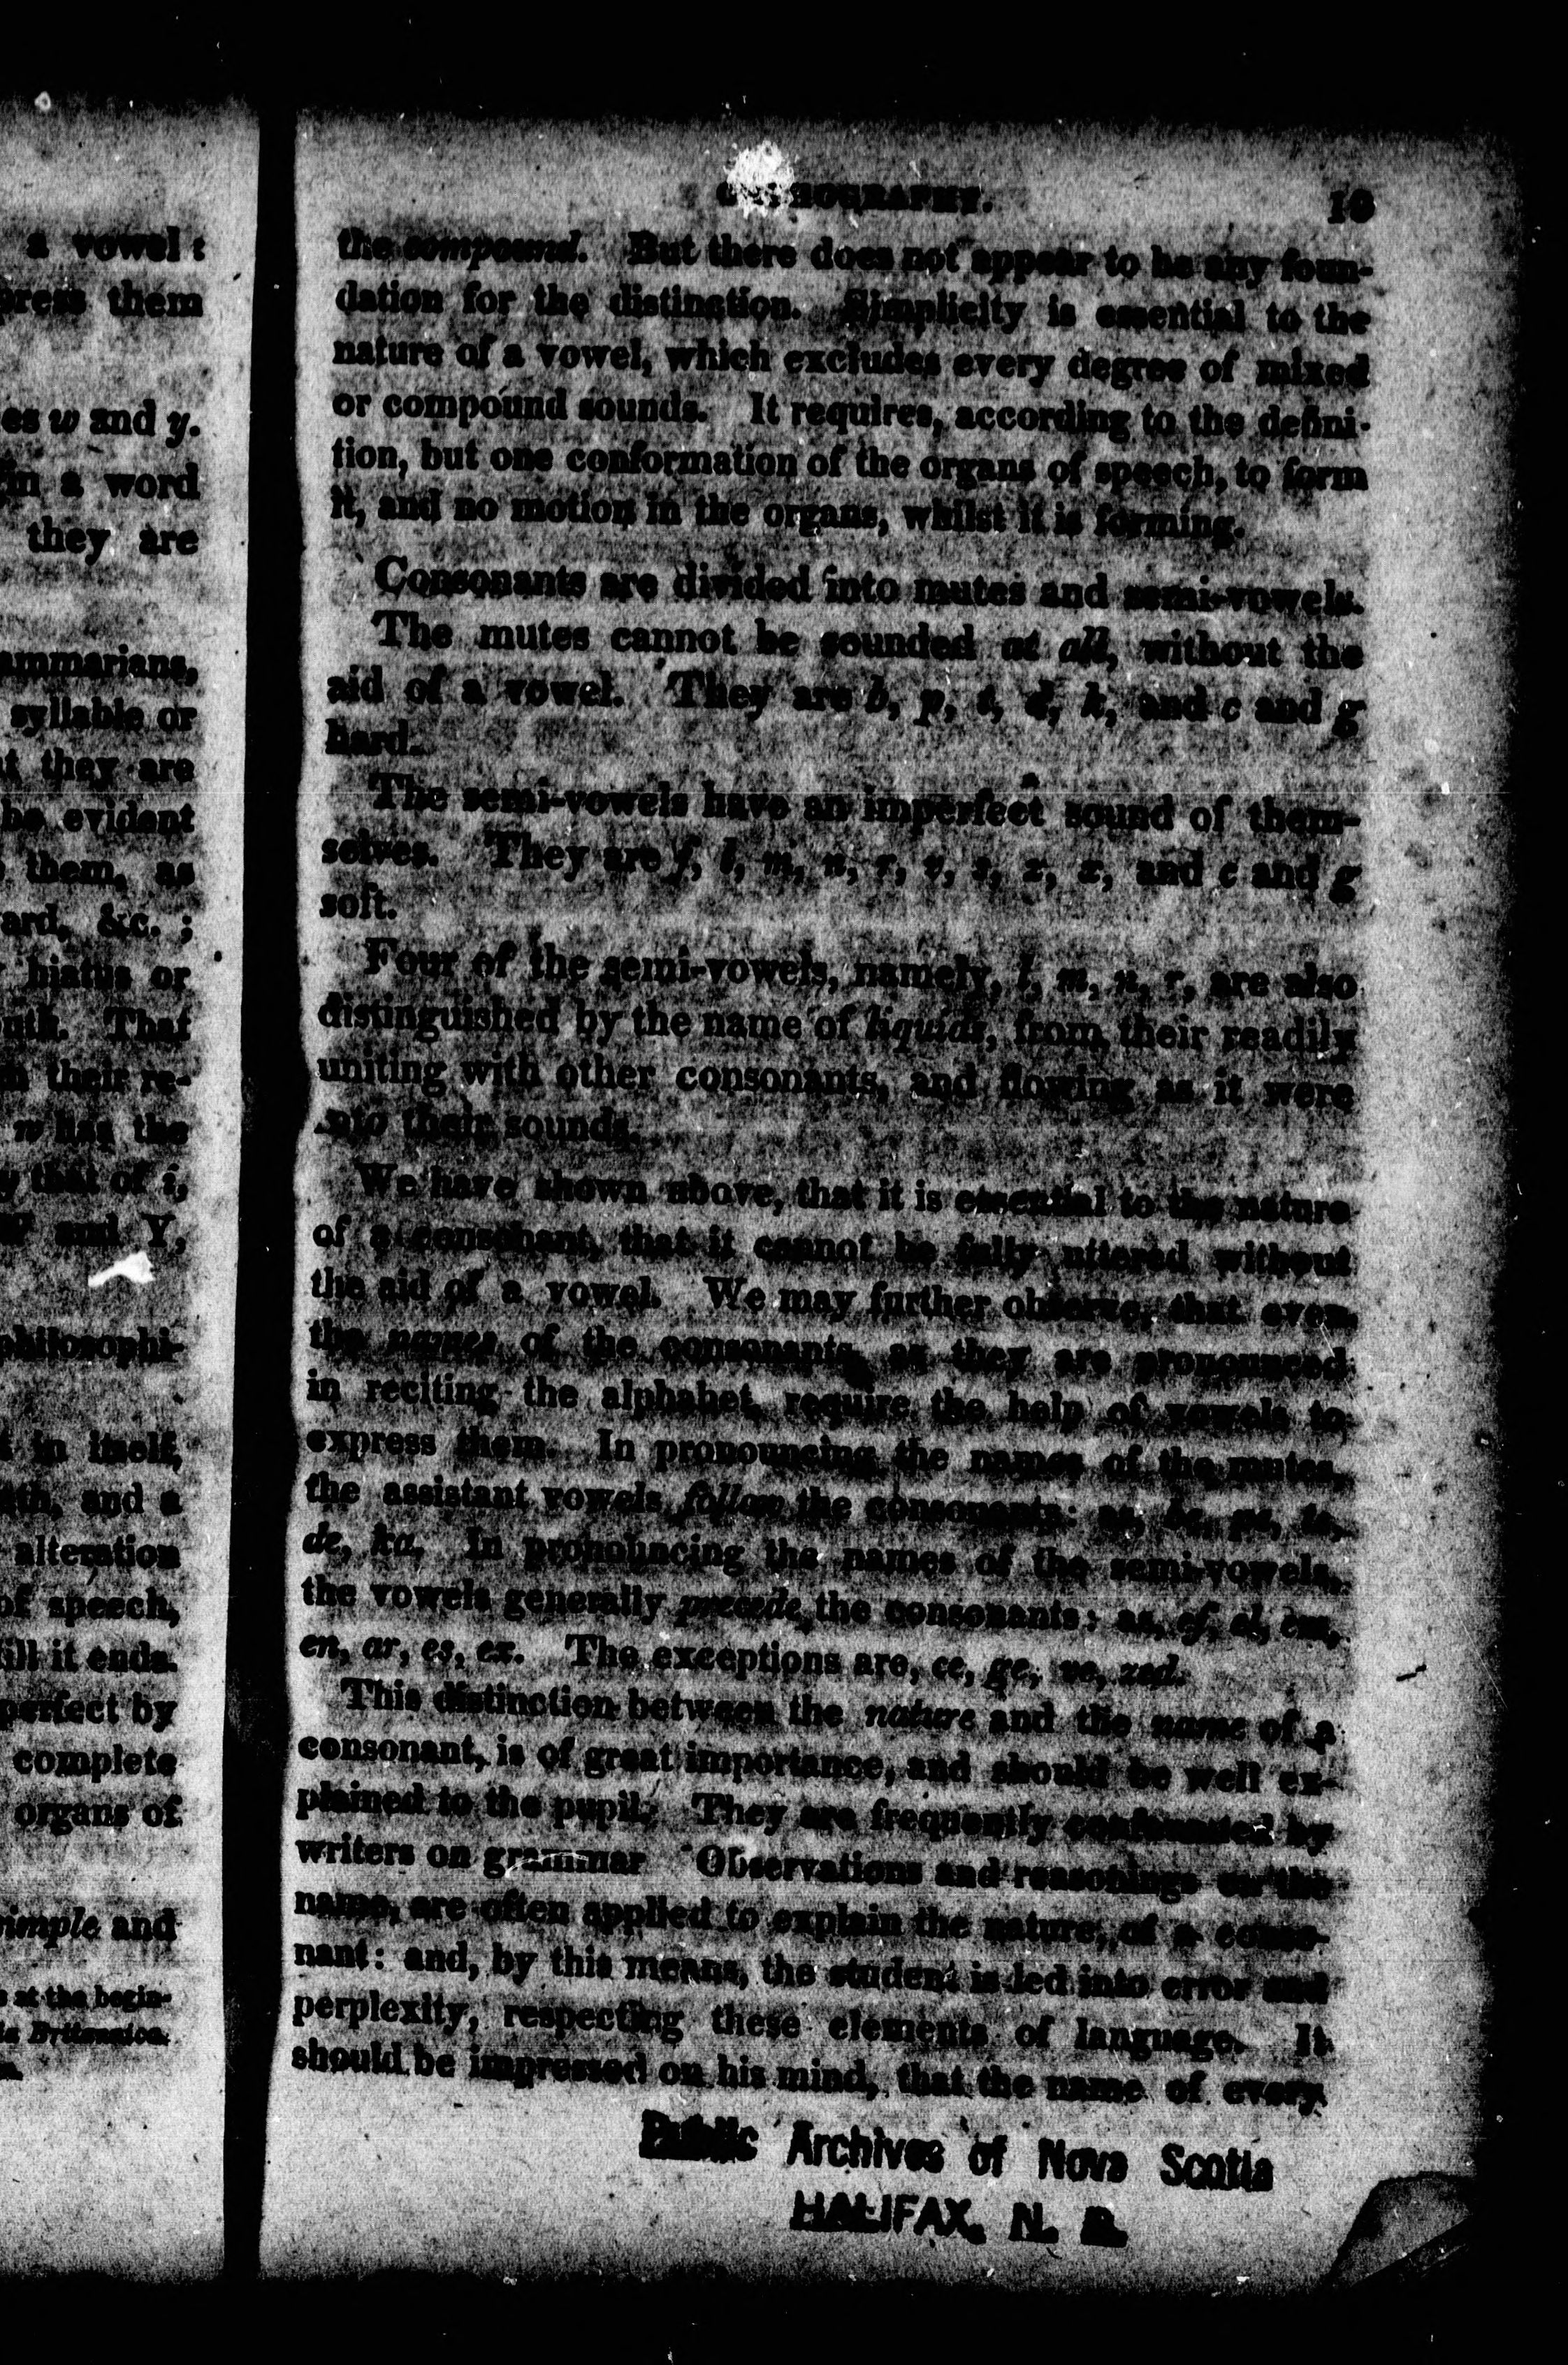 a vowel:
press them
es w and y.
in a word
they are
ammarians,
syllable or
t they are
be evident
them, as
ard, &c. ;
hiatus or
uth. That
m their re-
w has the
y that of i,
and Y,
philosophi-
t in itself,
and a
alteration
of speech,
till it ends.
perfect by
complete
organs of
simple and
s at the begin-
Britannica.
ORTHOGRAPHY.
the compound. But there does not appear to be any foun-
dation for the distinction. Simplicity is essential to the
nature of a vowel, which excludes every degree of mixed
or compound sounds. It requires, according to the defini-
tion, but one conformation of the organs of speech, to form
it, and no motion in the organs, whilst it is forming.
Consonants are divided into mutes and semi-vowels.
The mutes cannot be sounded at all, without the
aid of a vowel. They are b, p, t, d, k, and c and g
hard.
The semi-vowels have an imperfect sound of them-
selves. They are f, l, m, n, r, v, s, z, x, and c and g
soft.
Four of the semi-vowels, namely, l, m, n, r, are also
distinguished by the name of liquids, from their readily
uniting with other consonants, and flowing as it were
into their sounds.
We have shown above, that it is essential to the nature
of a consonant, that it cannot be fully uttered without
the aid of a vowel. We may further observe, that even
the names of the consonants, as they are pronounced
in reciting the alphabet, require the help of vowels to
express them. In pronouncing the names of the mutes,
the assistant vowels follow the consonants: as, be, pe, te,
de, ka. In pronouncing the names of the semi-vowels,
the vowels generally precede the consonants; as, ef, el, em,
en, ar, es, ex. The exceptions are, ce, ge, ve, zed.
This distinction between the nature and the name of a
consonant, is of great importance, and should be well ex-
plained to the pupil. They are frequently confounded by
writers on grammar Observations and reasonings on the
name, are often applied to explain the nature, of a conso-
nant: and, by this means, the student is led into error and
perplexity, respecting these elements of language. It
should be impressed on his mind, that the name of every
Public Archives of Nova Scotia
HALIFAX, N. S.